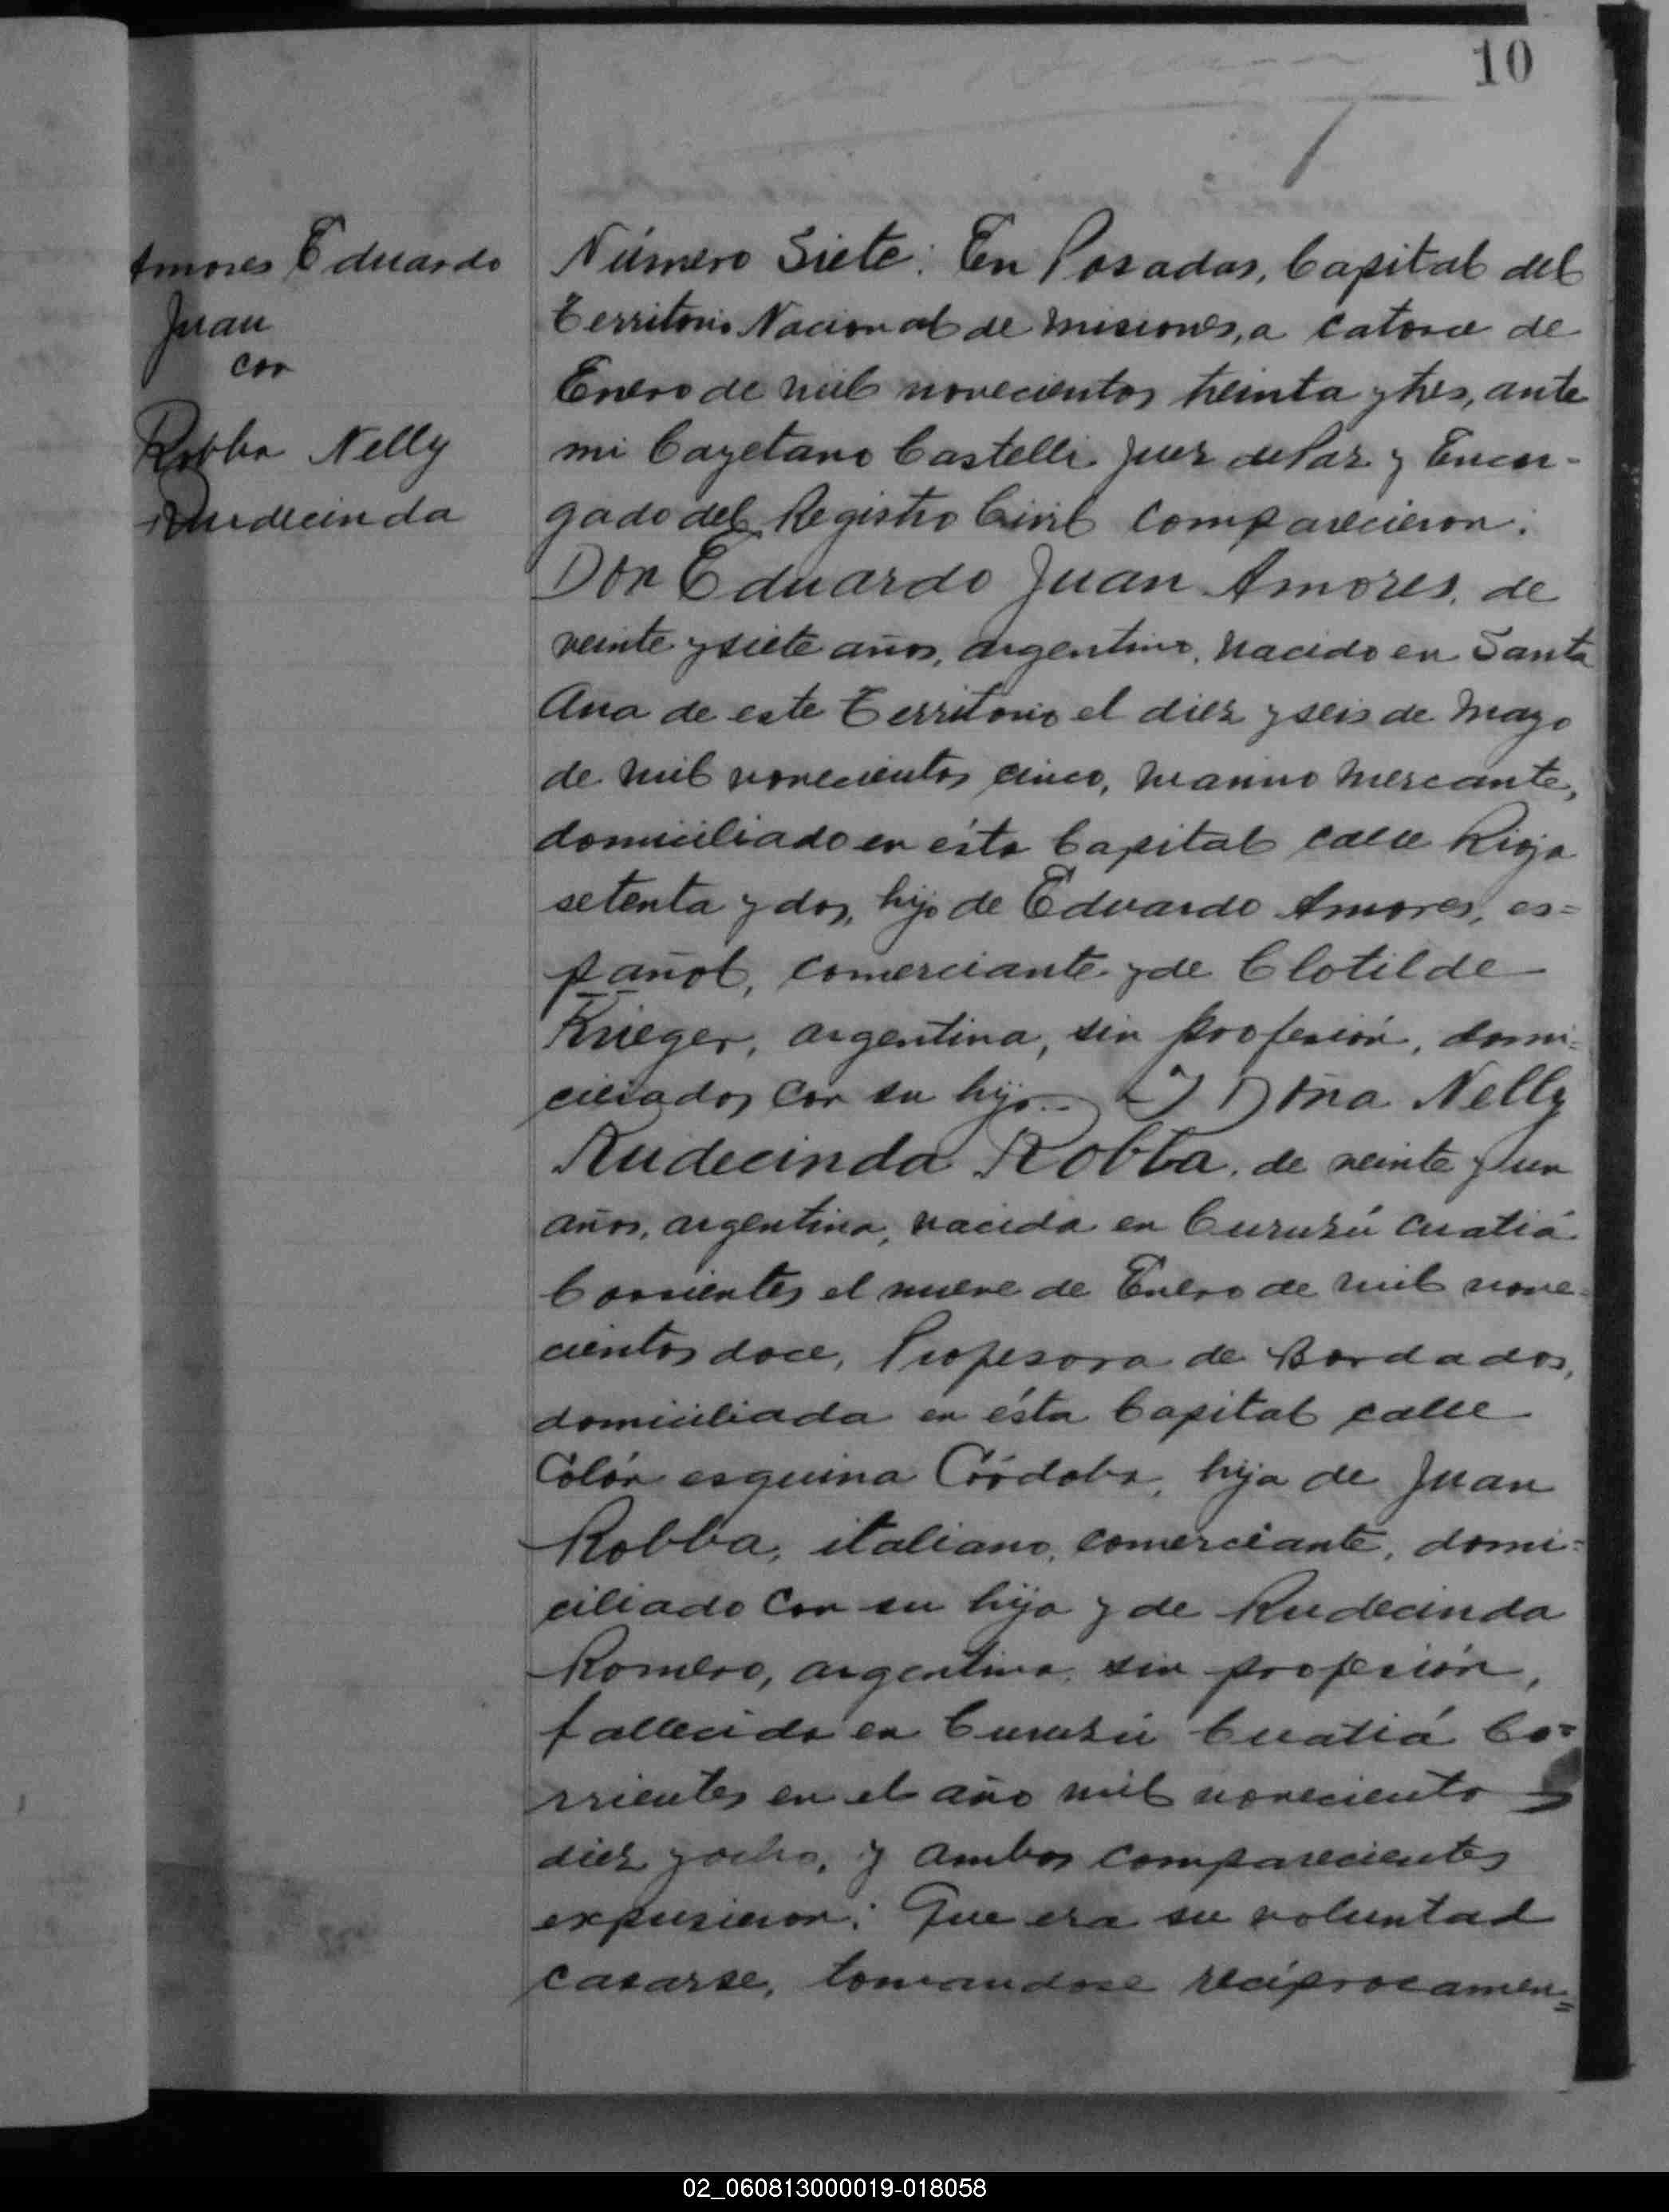 10
Amores Eduardo
Juan
con
Robba Nelly
Rudecinda
Número Siete: En Posadas, Capital del
Territorio Nacional de Misiones, a catorce de
Enero de mil novecientos treinta y tres, ante
mi Cayetano Castelli Juez de Paz y Encar-
gado del Registro Civil comparecieron:
Don Eduardo Juan Amores, de
veinte y siete años, argentino, nacido en Santa
Ana de este Territorio el diez y seis de Mayo
de mil novecientos cinco, marino mercante,
domiciliado en ésta Capital calle Rioja
setenta y dos, hijo de Eduardo Amores, es=
pañol, comerciante y de Clotilde
Krieger, argentina, sin profesión, domi=
ciliados con su hijo.. Y Doña Nelly
Rudecinda Robba, de veinte y un
años, argentina, nacida en Curuzú Cuatiá
Corrientes el nueve de Enero de mil nove=
cientos doce, Profesora de Bordados,
domiciliada en ésta Capital calle
Colón esquina Córdoba, hija de Juan
Robba, italiano, comerciante, domi=
ciliado con su hija y de Rudecinda
Romero, argentina, sin profesión,
fallecida en Curuzú Cuatiá Co=
rrientes en el año mil novecientos
diez y ocho, y ambos comparecientes
expusieron: Que era su voluntad
casarse, tomandose reciprocamen=
02_060813000019-018058